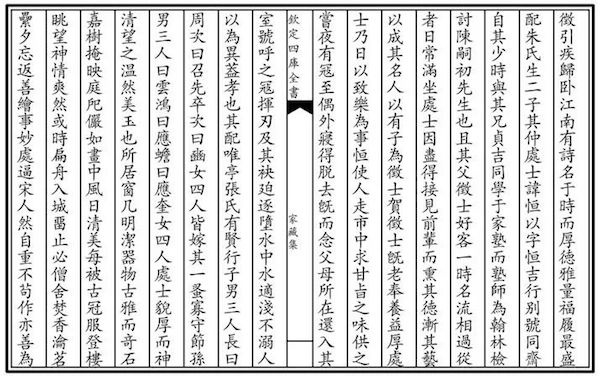 微引疾歸卧江南有詩名于時而厚德雅量福履最盛
配朱氏生二子其仲處士諱恒以字恒吉行别號同齋
自其少時與其兄貞吉同學于家塾而塾師為翰林檢
討陳嗣初先生也且其父徵士好客一時名流相過從
者日常滿坐處士因盡得接見前輩而熏其德漸其藝
以成其名人以有子為徵士賀徵士旣老奉養益厚處
士乃日以致樂為事恒使人走市中求甘旨之味供之
嘗夜有冦至偶外寢得脱去旣而念父母所在還入其
欽定四庫全書
家藏集
室號呼之冦揮刃及其袂迫逐墮水中水適淺不溺人
以為異蓋孝也其配唯亭張氏有賢行子男三人長曰
周次曰召先卒次曰豳女四人皆嫁其一蚤寡守節孫
男三人曰雲鴻曰應蟾曰應奎女四人處士貌厚而神
清望之温然美玉也所居窗几明潔器物古雅而奇石
嘉樹掩映庭戺儼如畫中風日清美每被古冠服登樓
眺望神情爽然或時扁舟入城啚止必僧舍焚香瀹茗
纍夕忘返善繪事妙處逼宋人然自重不茍作亦善為